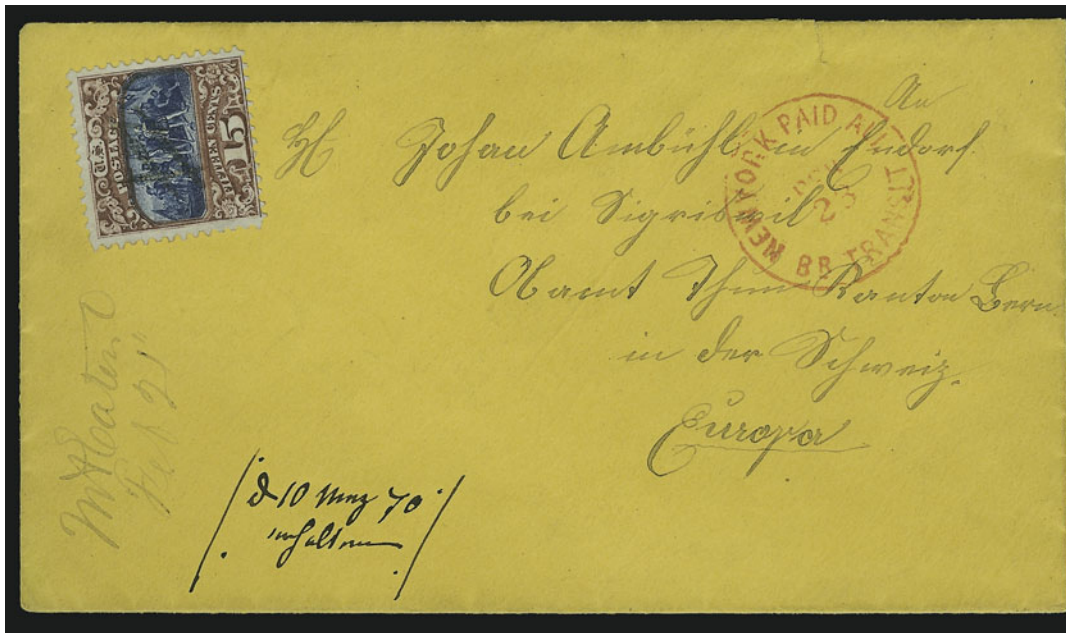 U.S. POSTAGE
FIFTEEN CENTS
15
NEW YORK PAID ALL
23
BR. TRANSIT
An
H Johan Ambühl in Endorf
bei Sigriswil
Obamt Thun, Kanton Bern
in der Schweiz,
Europa
Feb 21"
d 10 Merz 70
erhalten